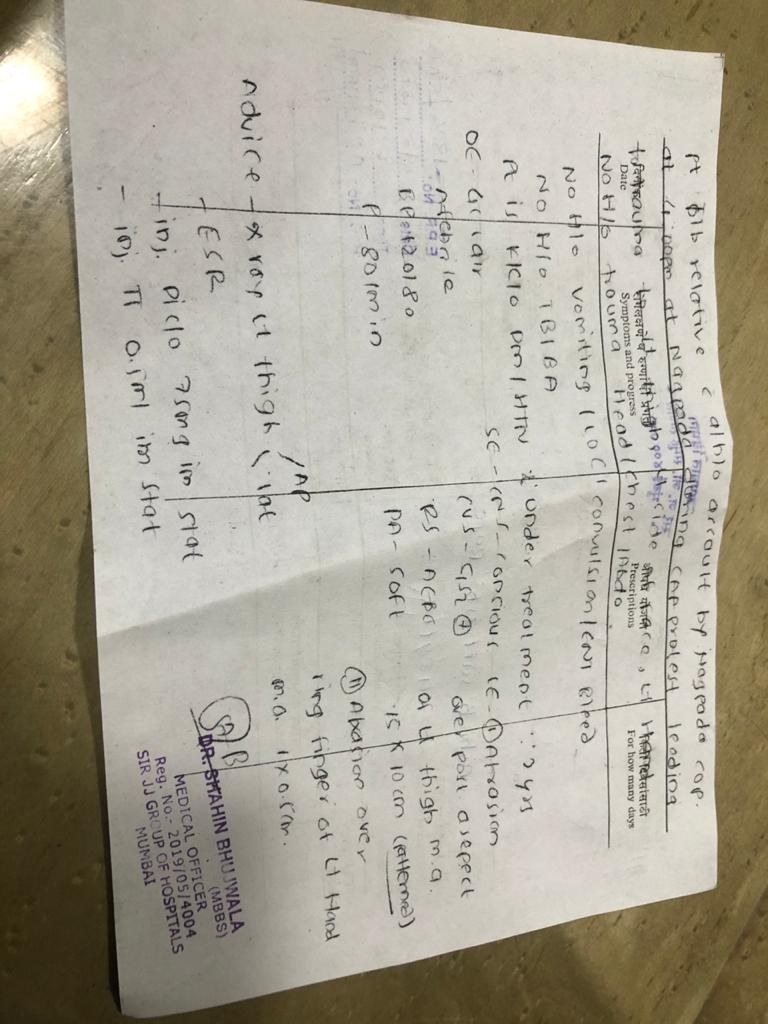 Pt B/b relative c̄ a/h/o assault by Nagpada cop.
at 4:00pm at Nagpada during CAA protest leading
to trauma Lt thigh side face, Lt Hand
Date
Symptoms and progress
Prescriptions
For how many days
No H/o trauma Head / chest / Abdo
No H/o vomiting / LOC / convulsion / ENT Bleed
No H/o TB / BA
Pt is K/C/o DM / HTN under treatment 2 yrs
OE - GC fair
Afebrile
BP - 120/80
P - 80/min
SE - CNS - consious
CVS - S1S2 +
RS - AEBE
PA - soft
LE - (I) Abrasion
over post. asepect
of Lt thigh m.a.
15 x 10 cm (patterned)
(II) Abasion over
ring finger of Lt Hand
m.a. 1 x 0.5cm.
Advice - x ray Lt thigh AP / lat
- ESR
- inj. Diclo 75mg im stat
- inj. TT 0.5ml im stat
DR. SHAHIN BHUJWALA
(MBBS)
MEDICAL OFFICER
Reg. No.- 2019/05/4004
SIR JJ GROUP OF HOSPITALS
MUMBAI